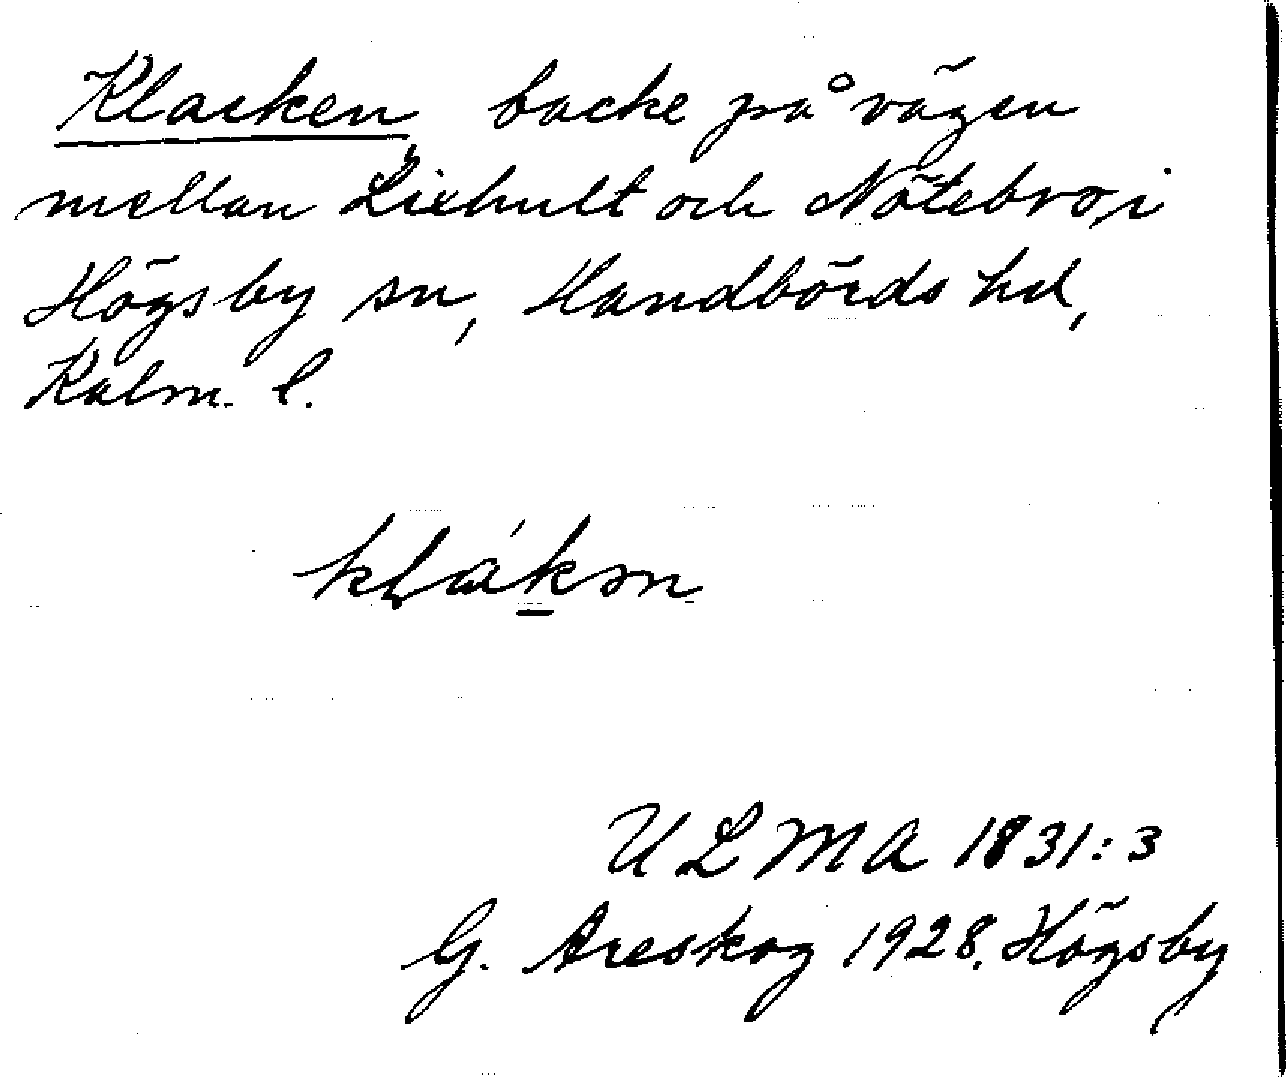 Klacken, backe på vägen
mellan Lixhult och Nötebro, i
Högsby sn, Handbörds hd,
Kalm. l.
U L M A 1831:3
G. Areskog 1928. Högsby